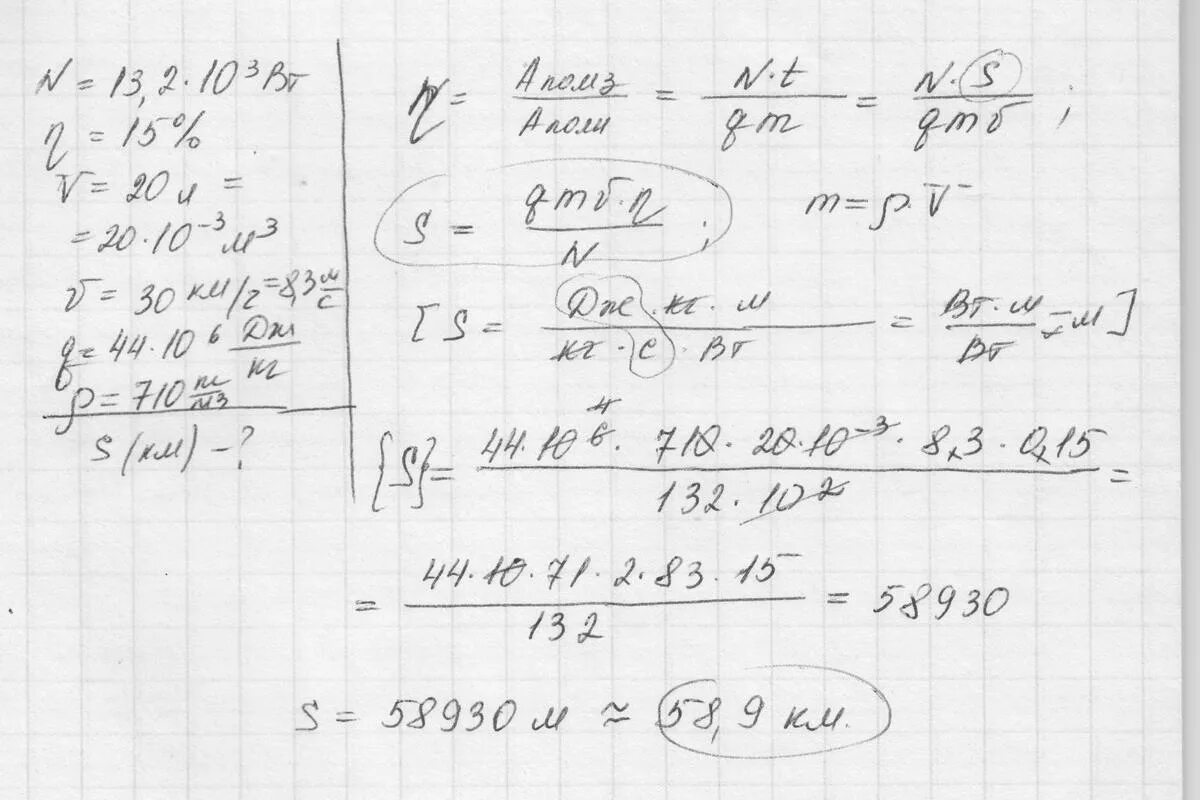 N = 13,2·10³ Вт
η = 15%
V = 20 л =
= 20·10⁻³ м³
v = 30 км/г = 8,3 м/с
q = 44·10⁶ Дж/кг
ρ = 710 кг/м3
S (км) - ?
η = Аполз/Аполн = N·t/qm = N·S/qmv ;
S = qmv·η/N ; m = ρ·V
[S = Дж·кг·м/кг·с·Вт = Вт·м/Вт = м]
{S} = 44·10⁶·710·20·10⁻³·8,3·0,15/132·10² =
= 44·10·71·2·83·15/132 = 58930
S = 58930 м ≈ 58,9 км.